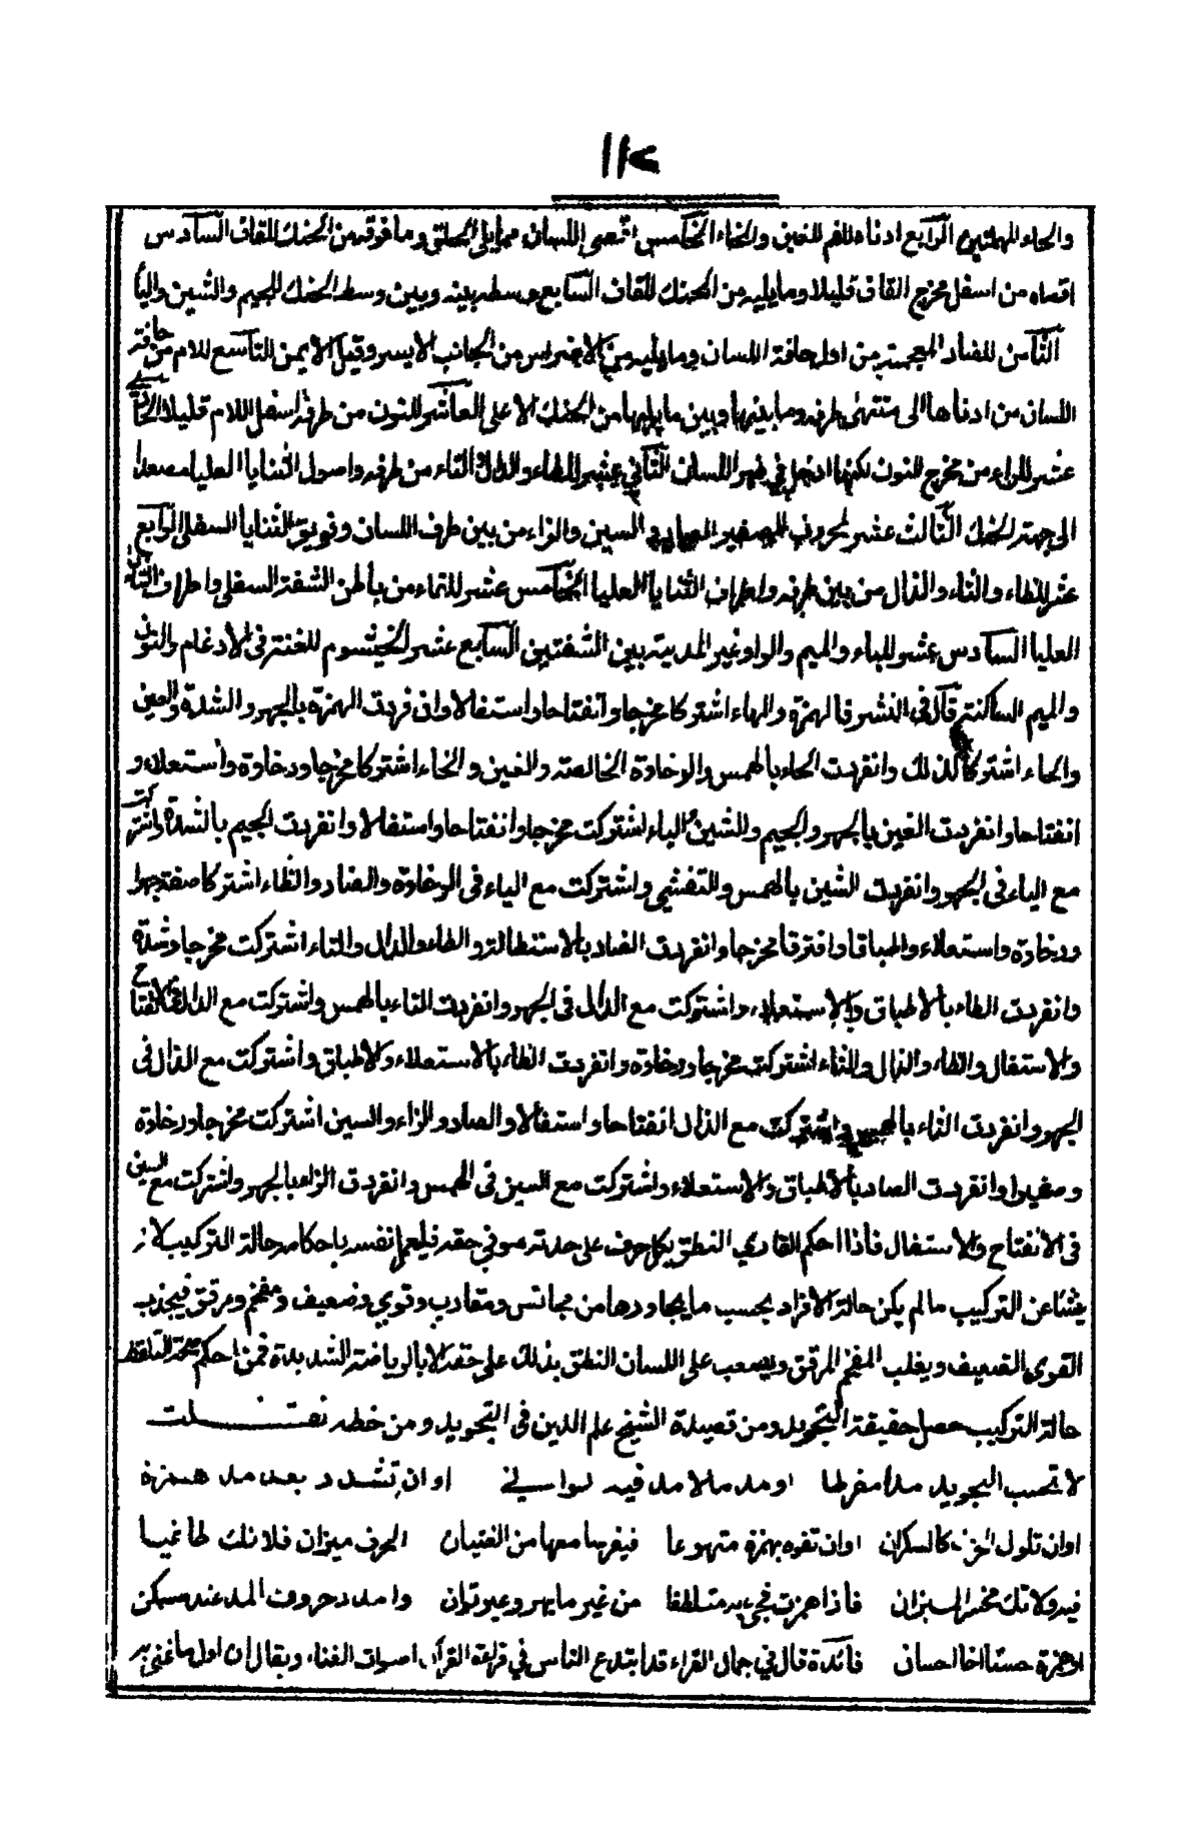 ١١٢
والحاء المهملتين الرابع ادناه للفم للغين والخاء الخامس اقصى اللسان مما يلى الحلق وما فوقه من الحنك للقاف السادس
اقصاه من اسفل مخرج القاف قليلا وما يليه من الحنك للكاف السابع وسطه بينه وبين وسط الحنك للجيم والشين والياء
الثامن للضاد المعجمة من اول حافة اللسان وما يليه من الاضراس من الجانب الايسر وقيل الايمن التاسع للام من حافة
اللسان من ادناها الى منتهى طرفه وما بينها وبين ما يليها من الحنك الاعلى العاشر للنون من طرفه اسفل اللام قليلا الحادى
عشر للراء من مخرج النون لكنها ادخل في ظهر اللسان الثاني عشر للطاء والدال والتاء من طرفه واصول الثنايا العليا مصعدا
الى جهة الحنك الثالث عشر لحروف الصفير الصاد والسين والزاء من بين طرف اللسان وفويق الثنايا السفلى الرابع
عشر للظاء والثاء والذال من بين طرفه واطراف الثنايا العليا الخامس عشر للفاء من باطن الشفة السفلى واطراف الثنايا
العليا السادس عشر للباء والميم والواو غير المدية بين الشفتين السابع عشر الخيشوم للغنة فى الادغام والنون
والميم الساكنة قال فى النشر فالهمزة والهاء اشتركا مخرجا وانفتاحا واستفالا وانفردت الهمزة بالجهر والشدة والعين
والحاء اشتركا كذلك وانفردت الحاء بالهمس والرخاوة الخالصة والغين والخاء اشتركا مخرجا ورخاوة واستعلاء و
انفتاحا وانفردت الغين بالجهر والجيم والشين والياء اشتركت مخرجا وانفتاحا واستفالا وانفردت الجيم بالشدة واشتركت
مع الياء فى الجهر وانفردت الشين بالهمس والتفشي واشتركت مع الياء فى الرخاوة والضاد والظاء اشتركا صفة جهرا
ورخاوة واستعلاء واطباقا وافترقا مخرجا وانفردت الضاد بالاستطالة والطاء والدال والتاء اشتركت مخرجا وشدة
وانفردت الطاء بالاطباق والاستعلاء واشتركت مع الدال فى الجهر وانفردت التاء بالهمس واشتركت مع الدال فى الانفتاح
والاستفال والظاء والذال والثاء اشتركت مخرجا ورخاوة وانفردت الظاء بالاستعلاء والاطباق واشتركت مع الذال فى
الجهر وانفردت الثاء بالهمس واشتركت مع الذال انفتاحا واستفالا والصاد والزاء والسين اشتركت مخرجا ورخاوة
وصفيرا وانفردت الصاد بالاطباق والاستعلاء واشتركت مع السين فى الهمس وانفردت الزاء بالجهر واشتركت مع السين
فى الانفتاح والاستفال فاذا احكم القاري النطق بكل حرف على حدته موفي حقه فليعمل نفسه باحكامه حالة التركيب لانه
ينشأ عن التركيب ما لم يكن حالة الافراد بحسب ما يجاورها من مجانس ومقارب وقوي وضعيف ومفخم ومرقق فيجذب
القوي الضعيف ويغلب المفخم المرقق ويصعب على اللسان النطق بذلك على حقه الا بالرياضة الشديدة فمن احكم صحة التلفظ
حالة التركيب حصل حقيقة التجويد ومن قصيدة الشيخ علم الدين فى التجويد ومن خطه نقلت
لا تحسب التجويد مدا مفرطا او مد ما لا مد فيه لوانــي او ان تشدد بعد مد همزة
او ان تلوك الحرف كالسكران او ان تفوه بهمزة متهوعا فيفر سامعها من الغثيان الحرف ميزان فلا تك طاغيا
فيه ولا تك مخسر الميزان فاذا همزت فجيء به متلطفا من غير ما بهر وغير توان وامدد حروف المد عند مسكن
او همزة حسنا اخا احسان فائدة قال في جمال القراء قد ابتدع الناس في قراءة القرآن اصوات الغناء ويقال ان اول ما غنى به